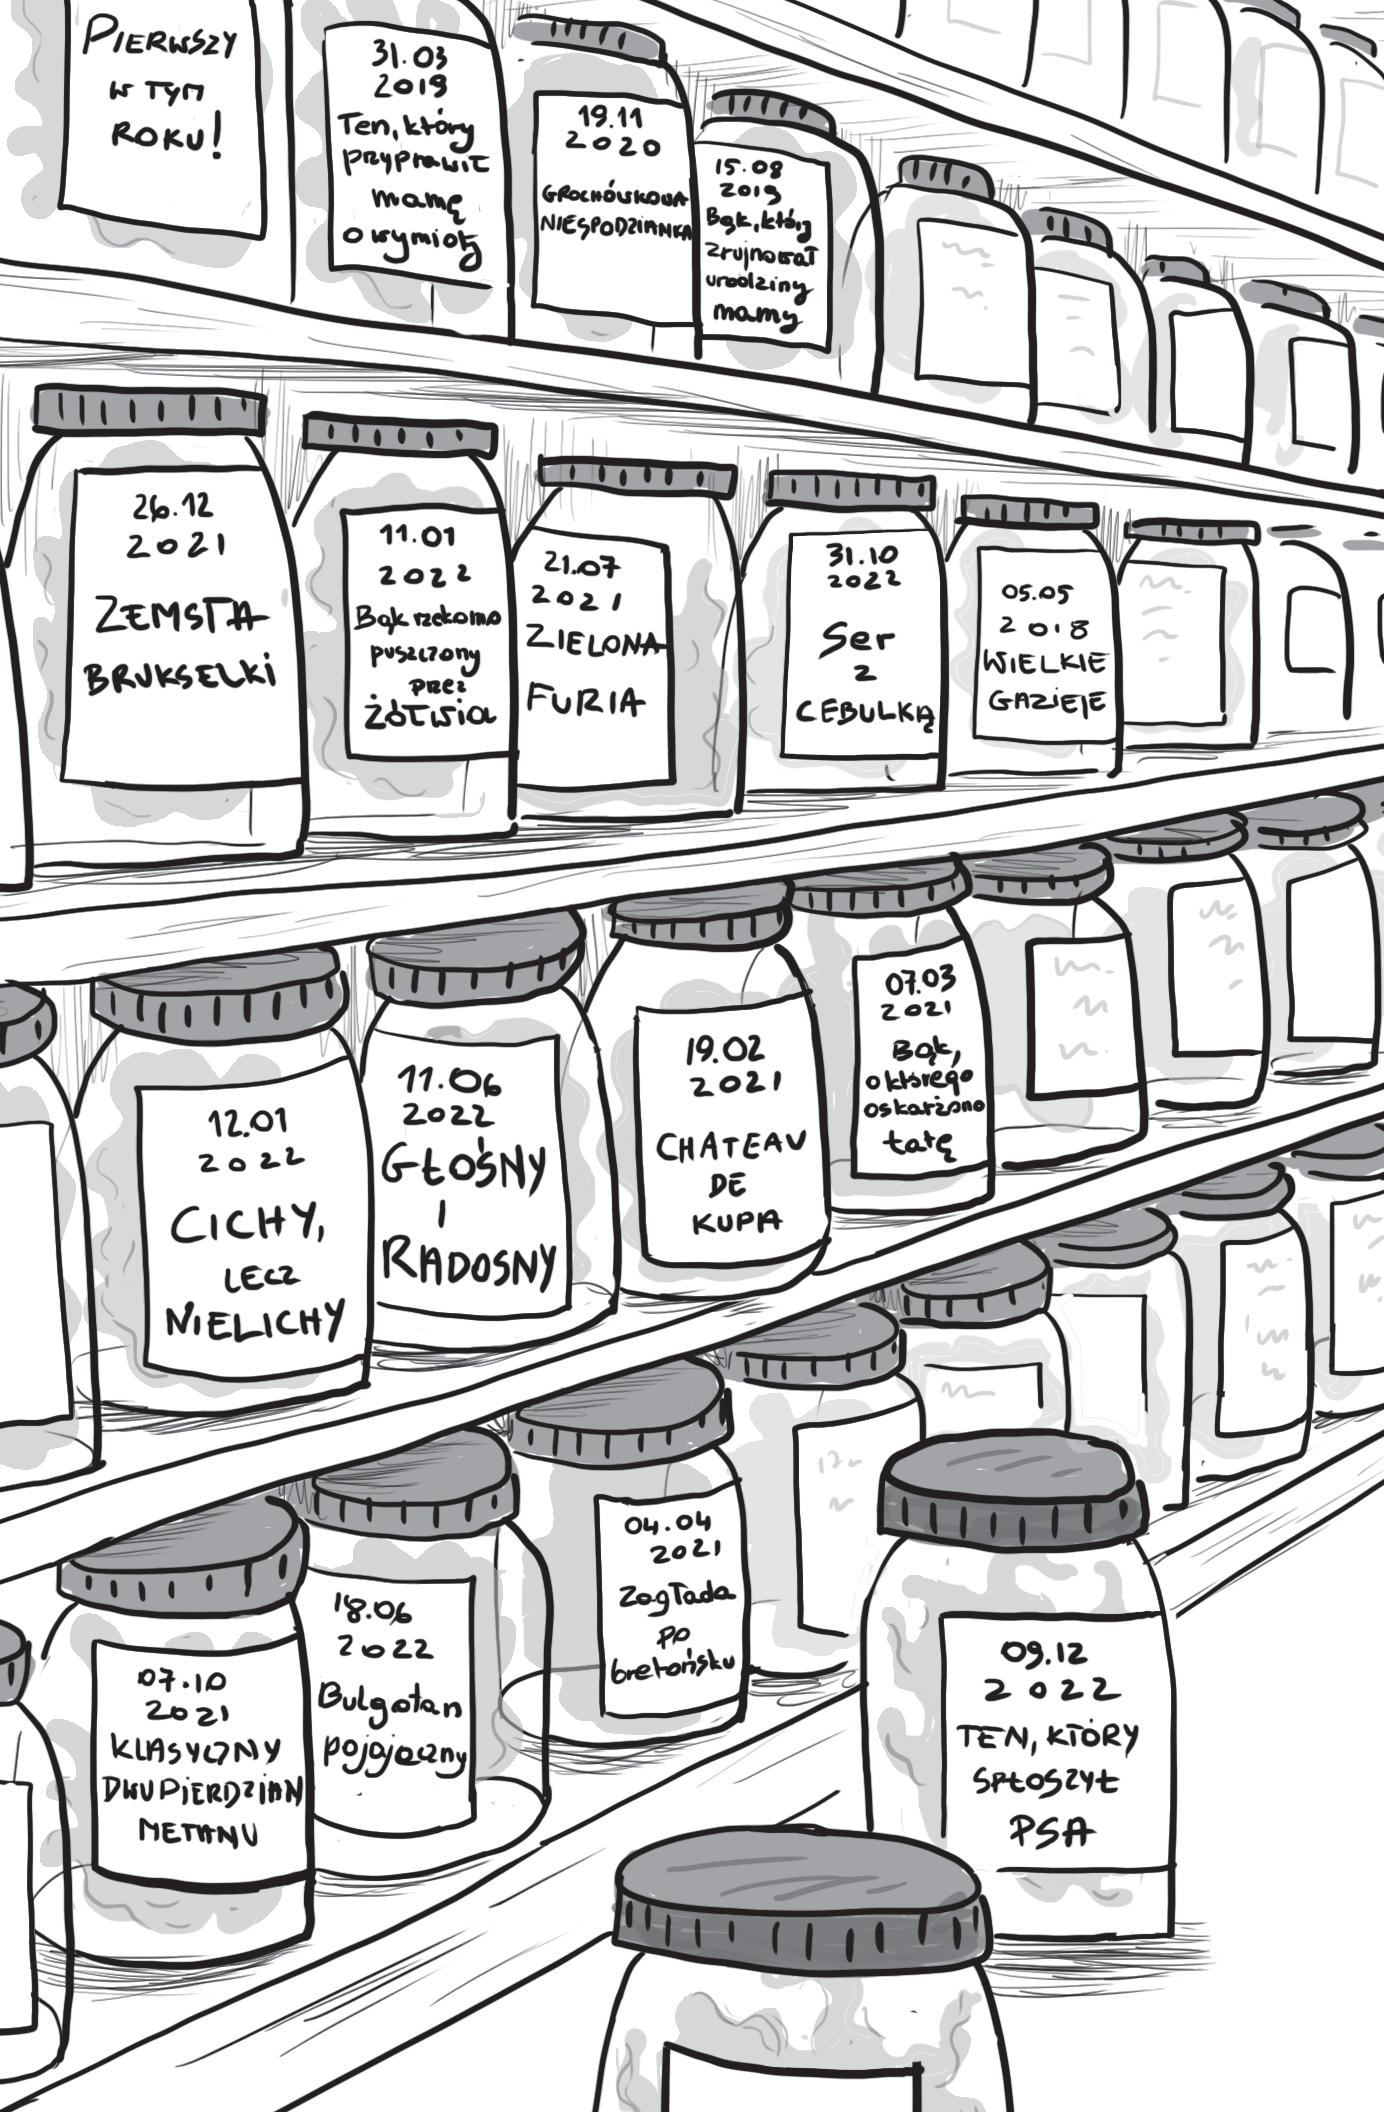 PIERWSZY
W TYM
ROKU!
31.03
2019
Ten, który
przyprawił
mamę
o wymioty
19.11
2020
GROCHÓWKOWA
NIESPODZIANKA
15.08
2019
Bąk, który
zrujnował
urodziny
mamy
26.12
2021
ZEMSTA
BRUKSELKI
11.01
2022
Bąk rzekomo
puszczony
przez
żółwia
21.07
2021
ZIELONA
FURIA
31.10
2022
Ser
z
CEBULKĄ
05.05
2018
WIELKIE
GAZIEJE
12.01
2022
CICHY,
LECZ
NIELICHY
11.06
2022
GŁOŚNY
I
RADOSNY
19.02
2021
CHATEAU
DE
KUPA
07.03
2021
Bąk,
o którego
oskarżono
tatę
07.10
2021
KLASYCZNY
DWUPIERDZIAN
METANU
18.06
2022
Bulgotan
pojajeczny
04.04
2021
Zagłada
po
bretońsku
09.12
2022
TEN, KTÓRY
SPŁOSZYŁ
PSA